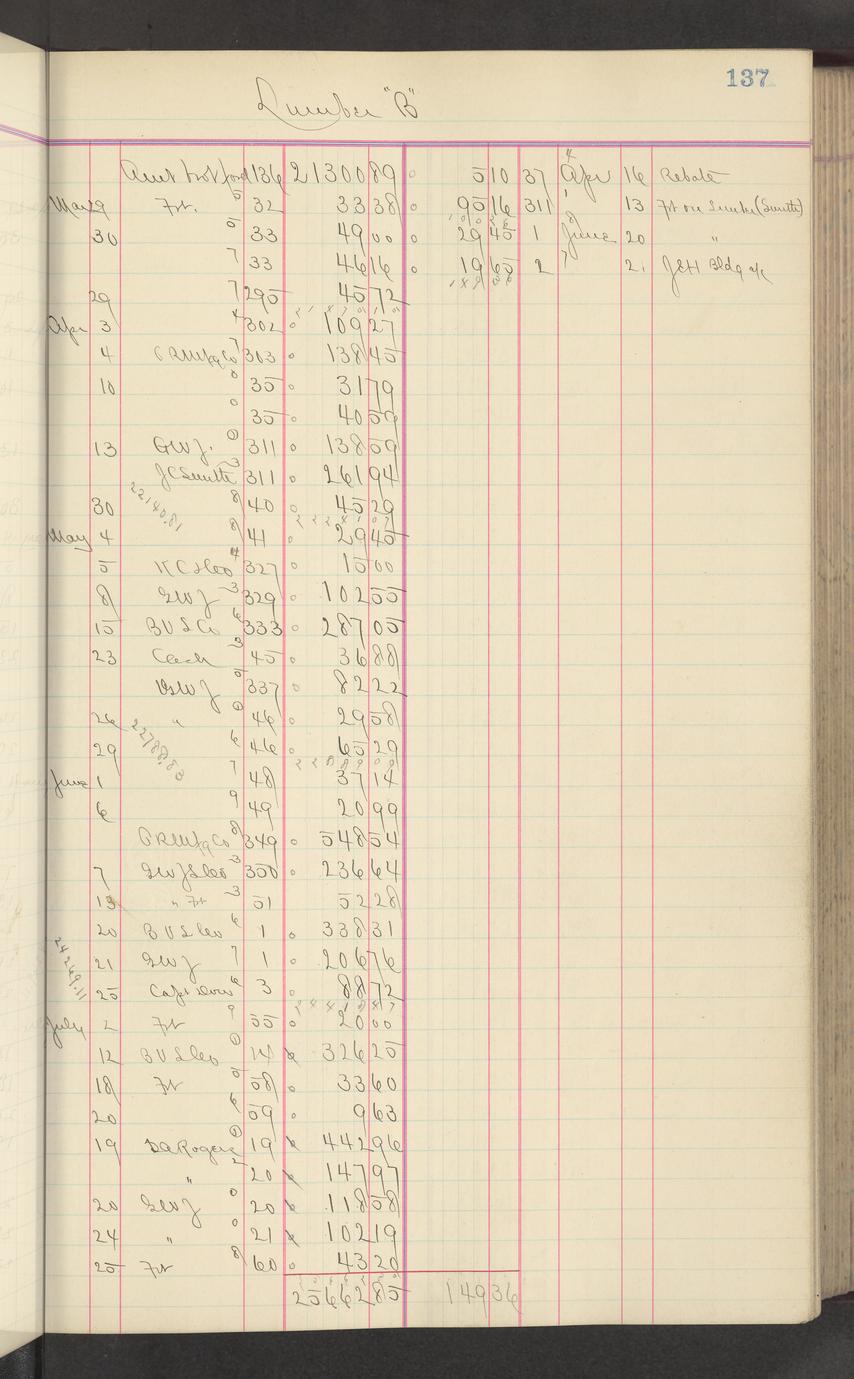 137
Lumber "B"
Amt brot ford 136 21300 89 5 10 37 Apr 16 Rebate
Mar 29 Frt. 32 33 38 95 16 311 13 Frt on Lumber (Smith)
30 33 49 00 29 45 1 June 20 "
33 46 16 19 65 2 21 J&H Bldg a/c
29 295 45 72
Apr 3 302 109 27
4 303 138 45
10 35 31 79
35 40 59
13 GWJ. 311 138 59
JC Smith 311 261 94
30 40 45 29
22140.81
May 4 41 29 45
5 327 15 00
8 GWJ 329 102 55
15 BVSCo 333 287 05
23 Cash 45 36 88
GWJ 337 82 22
26 " 46 29 58
29 46 65 29
22788.83
June 1 48 37 14
6 49 20 99
349 548 54
7 350 236 64
13 " Frt 51 52 28
20 BVSCo 1 338 31
21 GWJ 1 206 76
25 3 88 72
24269.11
July 2 Frt 55 20 00
12 BVSCo 14 326 25
18 Frt 58 33 60
20 59 9 63
19 DaRogers 19 442 96
" 20 147 97
20 GWJ 20 118 58
24 " 21 102 19
25 Frt 60 43 20
25662 85 149 36